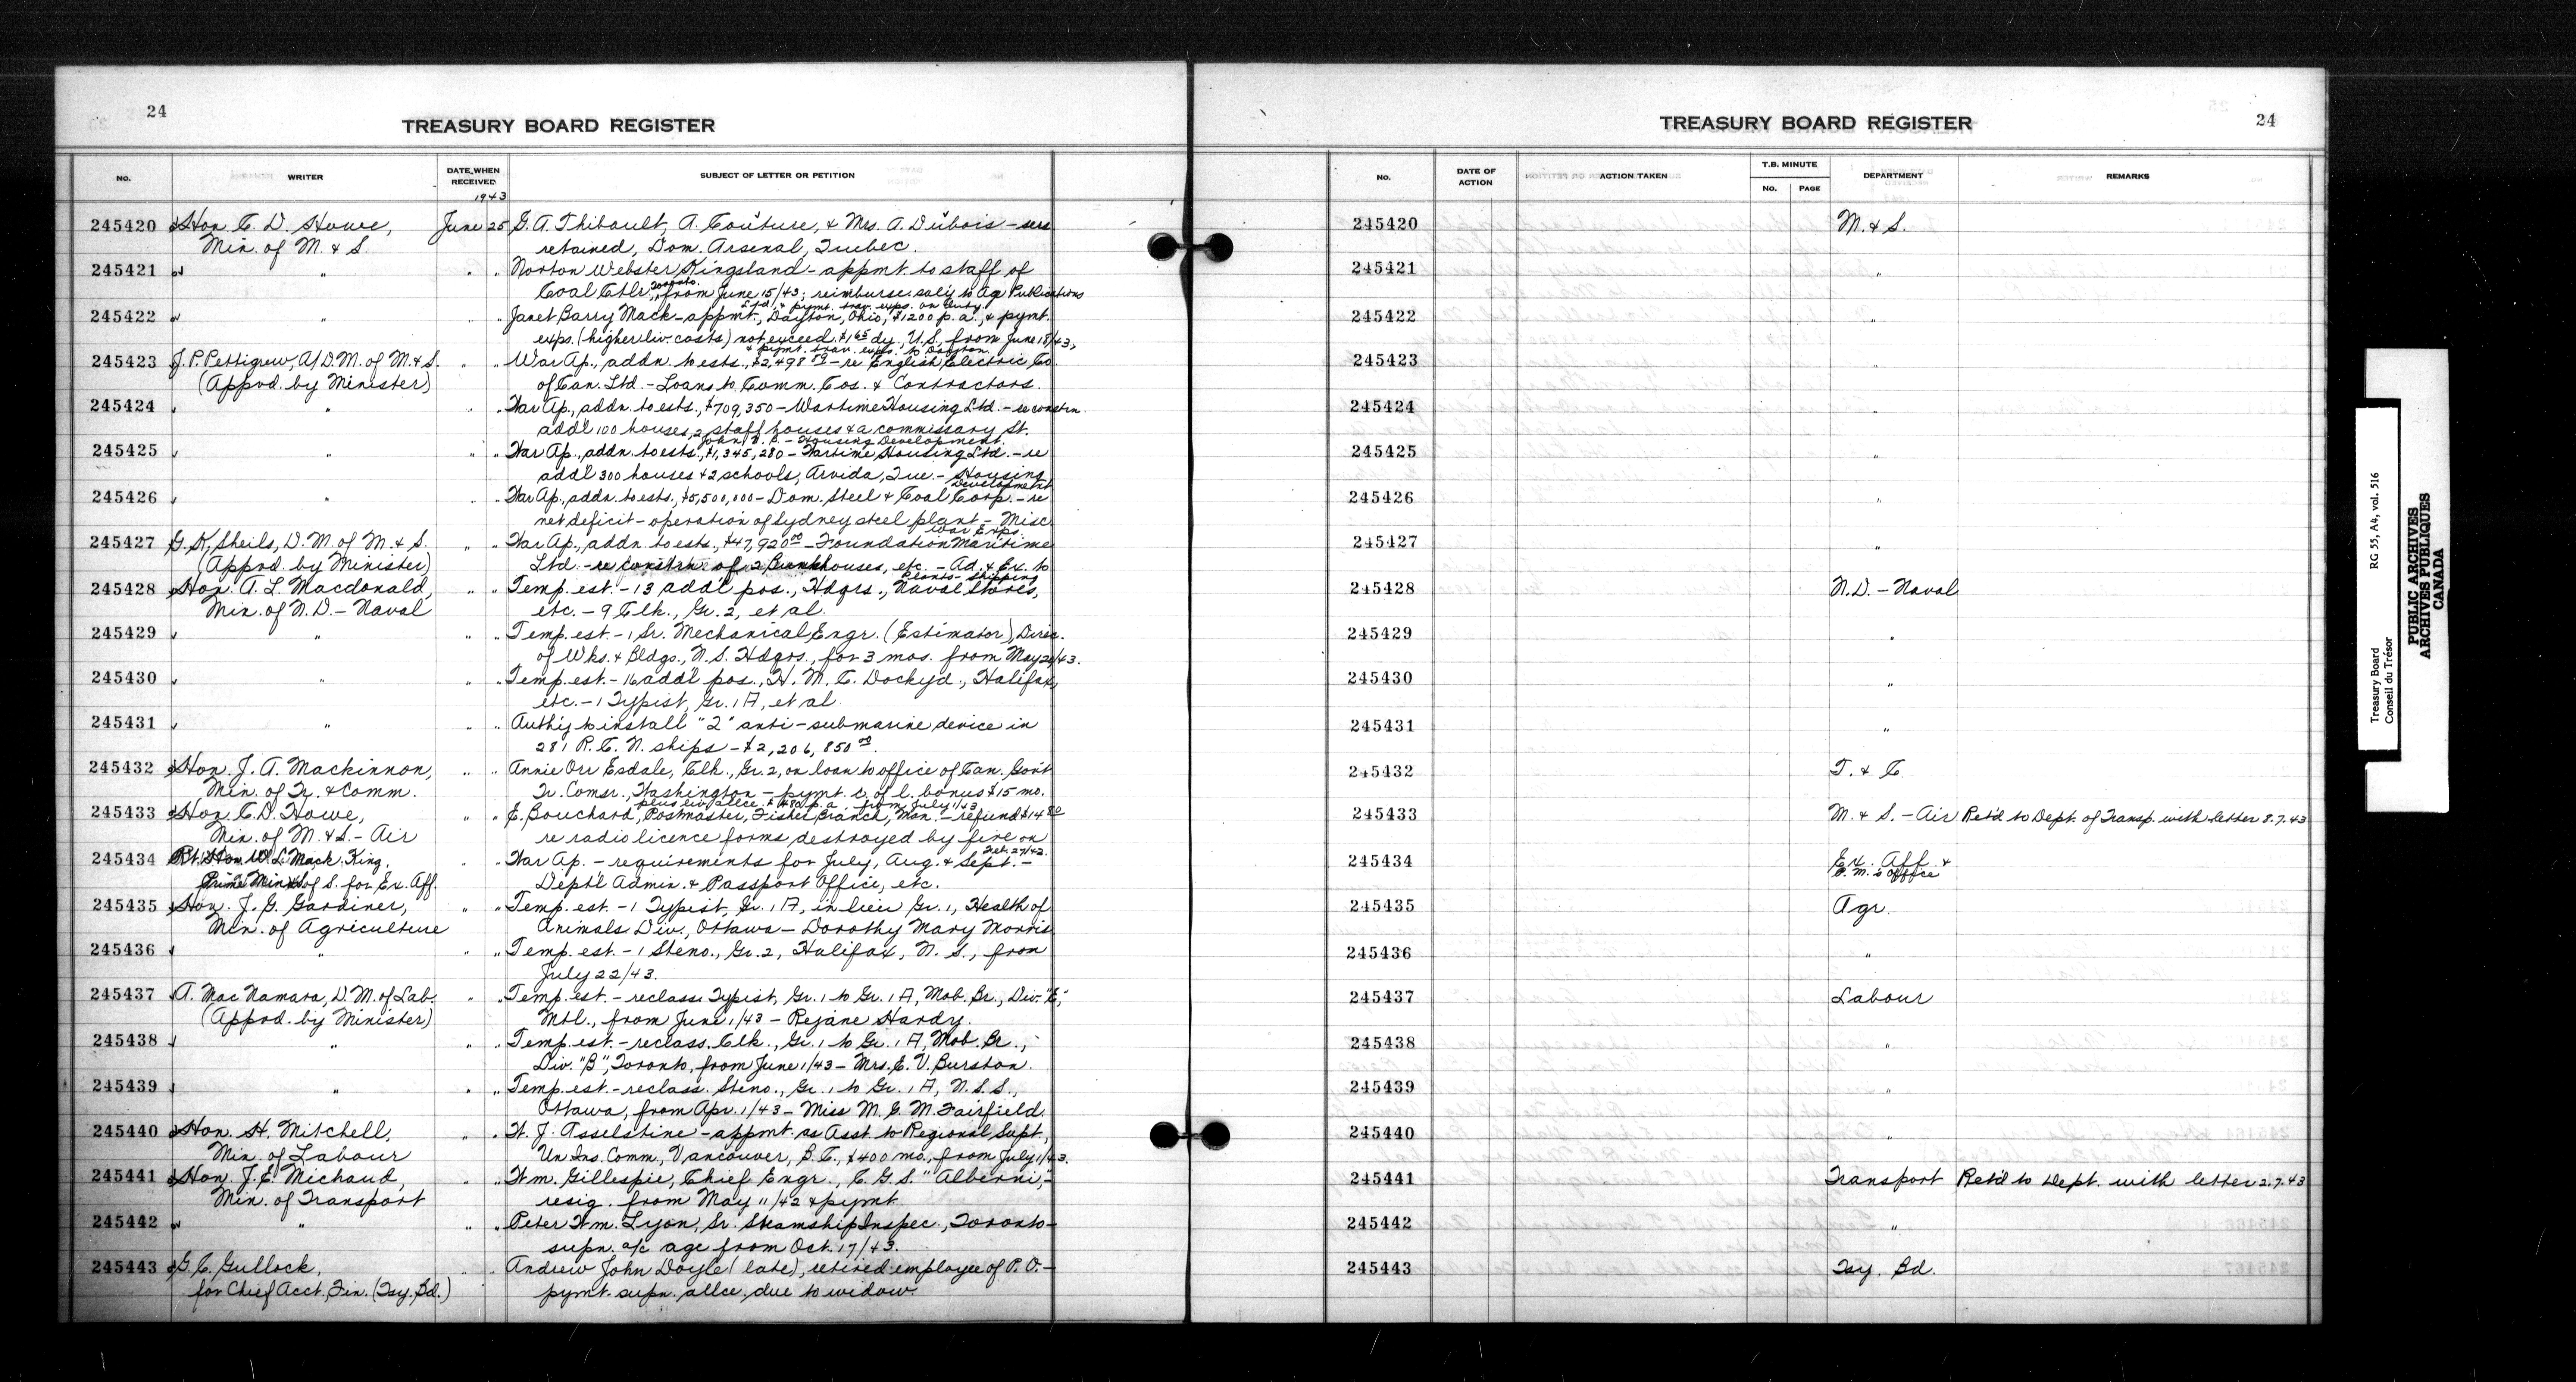 24
TREASURY BOARD REGISTER
No.
WRITER
DATE WHEN RECEIVED
SUBJECT OF LETTER OR PETITION
1943
245420 Hon. C. D. Howe, June 25 G. A. Thibault, A. Couture, & Mrs. A. Dubois - sers
Min. of M. & S. retained, Dom. Arsenal, Quebec.
245421 " " " Norton Webster Kingsland - appmt. to staff of
Coal Ctlr., Toronto, from June 15/43; reimburse. sal'y to Ag Publications
Ltd. & pymt. trav. exps. on duty.
245422 " " " Janet Barry Mack - appmt., Dayton, Ohio, $1200 p.a., & pymt.
exps. (higher liv. costs) not exceed. $1.65 dy., U.S., from June 18/43,
& pymt. trav. exps. to Dayton
245423 J. P. Pettigrew, A/D.M. of M. & S. " " War Ap., addn. to ests., $2,498 - re English Electric Co.
(Appvd. by Minister) of Can. Ltd. - Loans to Comm. Cos. & Contractors.
245424 " " " War Ap., addn. to ests., $709,350 - Wartime Housing Ltd. - re constrn.
addl 100 houses, 2 staff houses & a commissary St.
John N. B. - Housing Development.
245425 " " " War Ap., addn. to ests., $1,345,280 - Wartime Housing Ltd. - re
addl 300 houses & 2 schools, Arvida, Que. - Housing
Development
245426 " " " War Ap., addn. to ests., $5,500,000 - Dom. Steel & Coal Corp. - re
net deficit - operation of Sydney steel plant - Misc.
War Exps.
245427 G. K. Sheils, D. M. of M. & S. " " War Ap., addn. to ests., $47,920.00 - Foundation Maritime
(Appvd. by Minister) Ltd. - re constrn. of 2 Bunkhouses, etc. - Ad. & Ex. to
Plants - Shipping
245428 Hon. A. L. Macdonald, " " Temp. est. - 13 addl pos., Hdqrs., Naval Stores,
Min. of N. D. - Naval etc. - 9 Clk., Gr. 2, et al.
245429 " " " Temp. est. - 1 Sr. Mechanical Engr. (Estimator), Direc.
of Wks. & Bldgs., N. S. Hdqrs., for 3 mos. from May /43.
245430 " " " Temp. est. - 16 addl pos., H. M. C. Dockyd., Halifax,
etc. - 1 Typist, Gr. 1 A, et al
245431 " " " Auth'y to install "Q" anti-submarine device in
281 R. C. N. ships - $2,206,850.00.
245432 Hon. J. A. Mackinnon, " " Annie Orr Esdale, Clk., Gr. 2, on loan to office of Can. Gov't
Min. of Tr. & Comm. Tr. Comsr., Washington - pymt. c. of l. bonus $15 mo.
plus liv. allce. $480 p.a. from July 1/43
245433 Hon. C. D. Howe, " " E. Bouchard, Postmaster, Fisher Branch, Man. - refund $14.80
Min. of M. & S. - Air re radio licence forms destroyed by fire on
Feb. 27/43.
245434 Rt. Hon. W. L. Mack. King, " " War Ap. - requirements for July, Aug. & Sept. -
Prime Min. & S. of S. for Ex. Aff. Dept'l Admin. & Passport Office, etc.
245435 Hon. J. G. Gardiner, " " Temp. est. - 1 Typist, Gr. 1 A, in lieu Gr. 1, Health of
Min. of Agriculture Animals Div., Ottawa - Dorothy Mary Morris
245436 " " " Temp. est. - 1 Steno., Gr. 2, Halifax, N. S., from
July 22/43.
245437 A. MacNamara, D. M. of Lab. " " Temp. est. - reclass. Typist, Gr. 1 to Gr. 1 A, Mob. Br., Div. "E,"
(Appvd. by Minister) Mtl., from June 1/43 - Rejane Hardy.
245438 " " " Temp. est. - reclass. Clk., Gr. 1 to Gr. 1 A, Mob. Br.,
Div. "B", Toronto, from June 1/43 - Mrs. E. V. Burston.
245439 " " " Temp. est. - reclass. Steno., Gr. 1 to Gr. 1 A, N. S. S.,
Ottawa, from Apr. 1/43 - Miss M. G. M. Fairfield.
245440 Hon. H. Mitchell, " " W. J. Asselstine - appmt. as Asst. to Regional Supt.,
Min. of Labour Un. Ins. Comm., Vancouver, B. C., $400 mo., from July 1/43.
245441 Hon. J. E. Michaud, " " Wm. Gillespie, Chief Engr., C. G. S. "Alberni," -
Min. of Transport resig. from May 11/42 & pymt
245442 " " " Peter Wm. Lyon, Sr. Steamship Inspec., Toronto -
supn. a/c age from Oct. 17/43.
245443 G. C. Gullock, " " Andrew John Doyle (late), retired employee of P. O. -
for Chief Acct. Fin. (Tsy. Bd.) pymt. supn. allce. due to widow
TREASURY BOARD REGISTER
24
No.
DATE OF ACTION
ACTION TAKEN
T.B. MINUTE
No.
PAGE
DEPARTMENT
REMARKS
245420 M. & S.
245421 "
245422 "
245423 "
245424 "
245425 "
245426 "
245427 "
245428 N. D. - Naval
245429 "
245430 "
245431 "
245432 T. & C.
245433 M. & S. - Air Ret'd to Dept. of Transp. with letter 8.7.43
245434 Ex. Aff. &
P. M.'s office
245435 Agr.
245436 "
245437 Labour
245438 "
245439 "
245440 "
245441 Transport Ret'd to Dept. with letter 2.7.43
245442 "
245443 Tsy. Bd.
Treasury Board RG 55, A4, vol. 516
Conseil du Trésor
PUBLIC ARCHIVES
ARCHIVES PUBLIQUES
CANADA